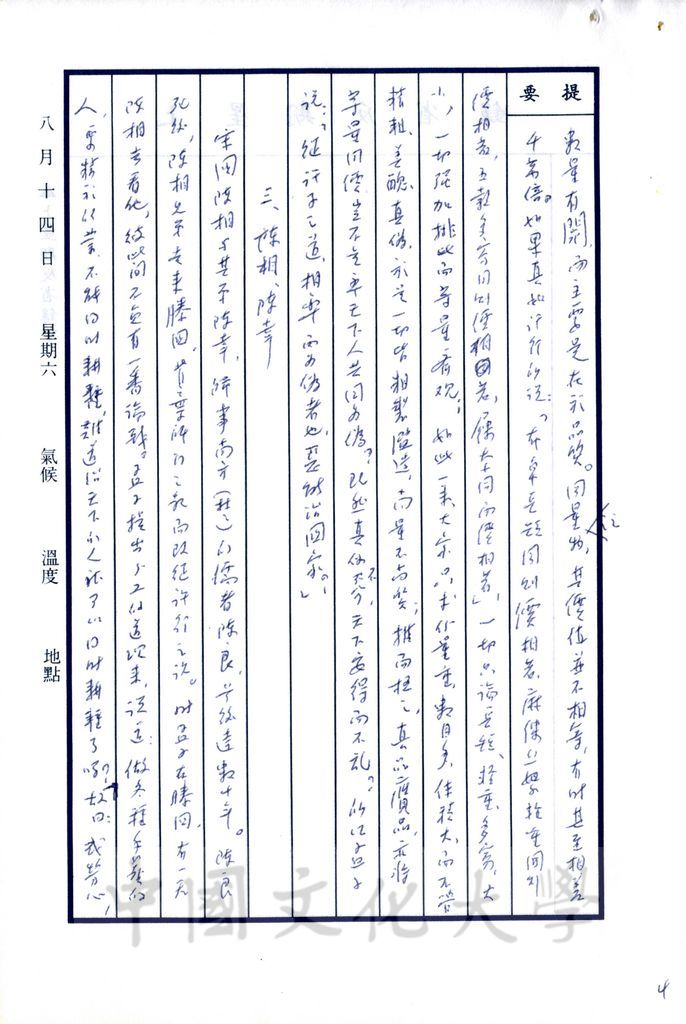 提要
數量有關,而主要是在於品質。同量物,其價值並不相等,有時甚至相差
千萬倍。如果真如許行所說:「布帛長短同則價相若,麻縷絲絮輕重同則
價相若,五穀多寡同則價相若,屨大小同而價相若」,一切只論長短、輕重、多寡、大
小,一切強加排比而等量齊觀;如此一來,大家只求份量重,數目多,体積大,而不管
精粗、美醜、真偽,於是一切皆粗製濫造,尚量不尚質;推而極之,真品贋品,亦將
等量同價,豈不是率天下人共同為偽?既然真偽不分,天下安得而不亂?所以孟子
說:「從許子之道,相率而為偽者也,惡能治國家。」
三、陳相、陳辛
宋國陳相与其弟陳辛,師事南方(楚)的儒者陳良,前後達數十年。陳良
死後,陳相兄弟走來滕國,背棄師門之教而改從許行之說。時孟子在滕國,有一天
陳相去看他,彼此間不免有一番論戰。孟子指出分工的道理來,說道:做各種手藝的
人,要精於作業,不能同時耕種,難道治天下的人就可以同時耕種了嗎?故曰:或勞心,
八月十四日 星期六 氣候 溫度 地點
中國文化大學
4